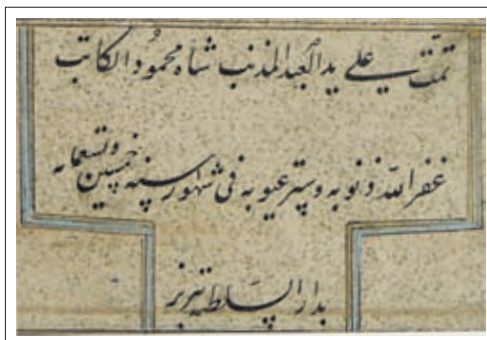 تمت علی ید العبد المذنب شاه محمود الکاتب
غفر الله ذنوبه و ستر عیوبه فی شهور سنه خمسین و تسعمایه
بدار السلطنه تبریز